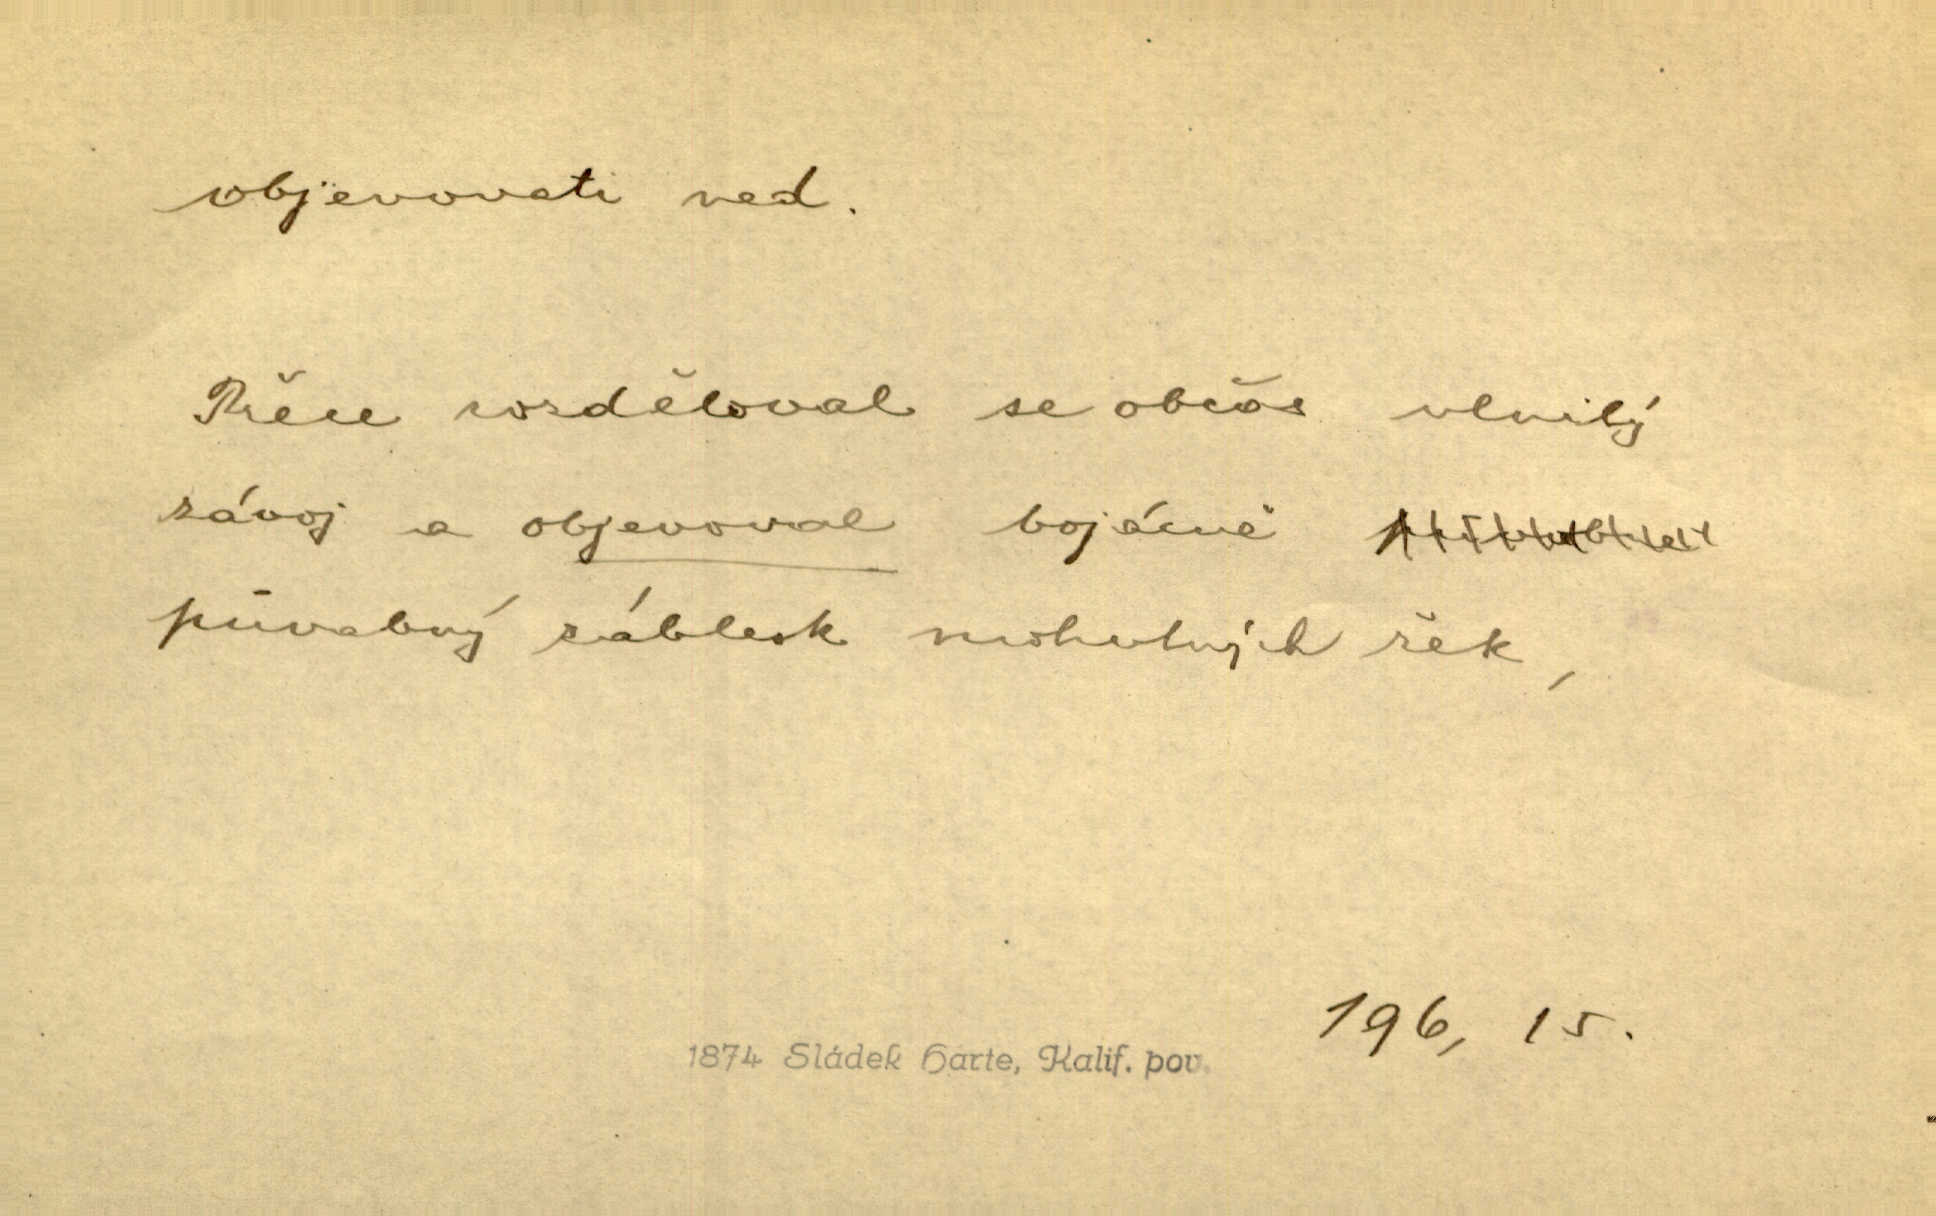 objevovati ned.
Přece rozděloval se občas vlnilý
závoj a objevoval bojácně
půvabný záblesk mohutných řek,
196, 15.
1874 Sládek Harte, Kalif. pov.